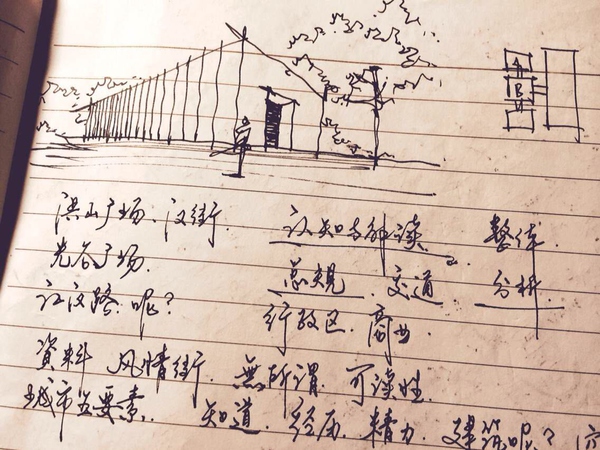 B
洪山广场、汉街. 认知与解读 整体.
光谷广场. 总规 交通 分析.
江汉路.呢? 行政区.商业.
資料 风情街.無所谓.可读性.
城市五要素. 知道.经历.精力.建筑呢?